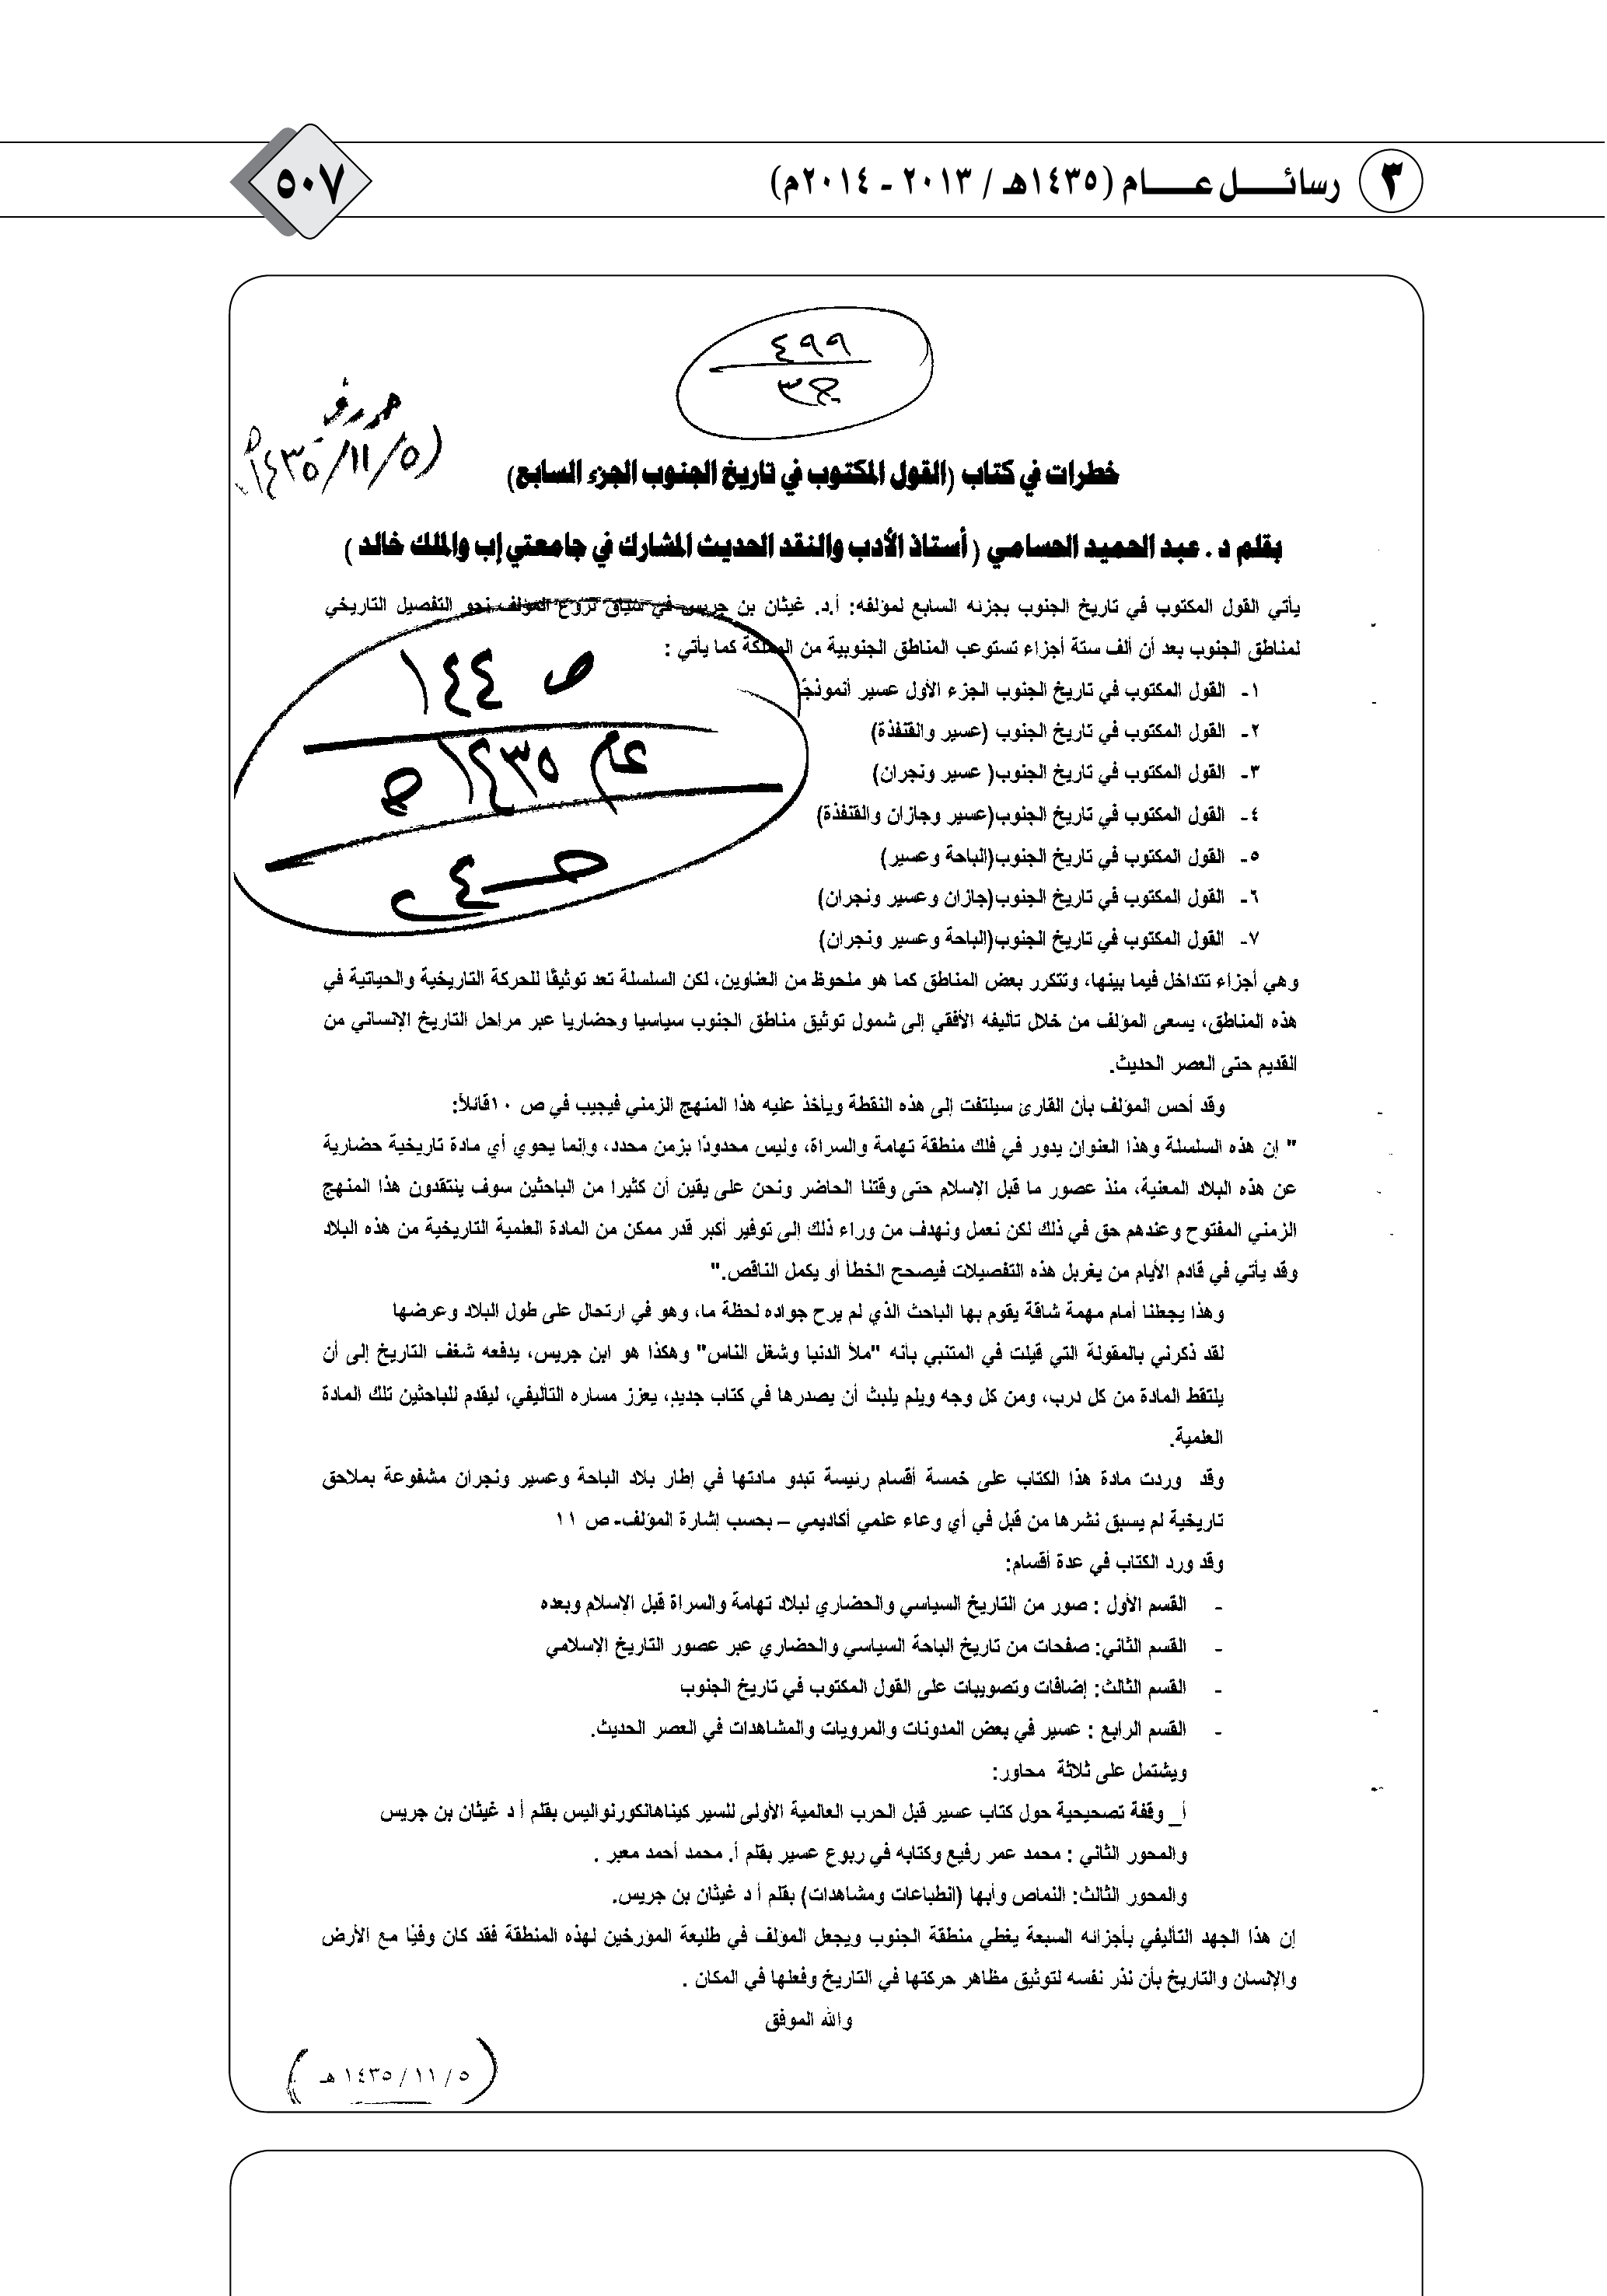 ٣ رسائـــل عـــــام (١٤٣٥هـ / ٢٠١٣ - ٢٠١٤م)
٥٠٧
٤٩٩
ج٣
(٥/١١/١٤٣٥هـ
خطرات في كتاب (القول المكتوب في تاريخ الجنوب الجزء السابع)
بقلم د . عبد الحميد الحسامي ( أستاذ الأدب والنقد الحديث المشارك في جامعتي إب والملك خالد )
يأتي القول المكتوب في تاريخ الجنوب بجزئه السابع لمؤلفه: أ.د. غيثان بن جريس في سياق نزوع المؤلف نحو التفصيل التاريخي
لمناطق الجنوب بعد أن ألف ستة أجزاء تستوعب المناطق الجنوبية من المملكة كما يأتي :
ص ١٤٤
عام ١٤٣٥ هـ
١- القول المكتوب في تاريخ الجنوب الجزء الأول عسير أنموذجًا
٢- القول المكتوب في تاريخ الجنوب (عسير والقنفذة)
٣- القول المكتوب في تاريخ الجنوب( عسير ونجران)
٤- القول المكتوب في تاريخ الجنوب(عسير وجازان والقنفذة)
٥- القول المكتوب في تاريخ الجنوب(الباحة وعسير)
٦- القول المكتوب في تاريخ الجنوب(جازان وعسير ونجران)
٧- القول المكتوب في تاريخ الجنوب(الباحة وعسير ونجران)
وهي أجزاء تتداخل فيما بينها، وتتكرر بعض المناطق كما هو ملحوظ من العناوين، لكن السلسلة تعد توثيقًا للحركة التاريخية والحياتية في
هذه المناطق، يسعى المؤلف من خلال تأليفه الأفقي إلى شمول توثيق مناطق الجنوب سياسيا وحضاريا عبر مراحل التاريخ الإنساني من
القديم حتى العصر الحديث.
وقد أحس المؤلف بأن القارئ سيلتفت إلى هذه النقطة ويأخذ عليه هذا المنهج الزمني فيجيب في ص ١٠قائلاً:
" إن هذه السلسلة وهذا العنوان يدور في فلك منطقة تهامة والسراة، وليس محدودًا بزمن محدد، وإنما يحوي أي مادة تاريخية حضارية
عن هذه البلاد المعنية، منذ عصور ما قبل الإسلام حتى وقتنا الحاضر ونحن على يقين أن كثيرا من الباحثين سوف ينتقدون هذا المنهج
الزمني المفتوح وعندهم حق في ذلك لكن نعمل ونهدف من وراء ذلك إلى توفير أكبر قدر ممكن من المادة العلمية التاريخية من هذه البلاد
وقد يأتي في قادم الأيام من يغربل هذه التفصيلات فيصحح الخطأ أو يكمل الناقص."
وهذا يجعلنا أمام مهمة شاقة يقوم بها الباحث الذي لم يرح جواده لحظة ما، وهو في ارتحال على طول البلاد وعرضها
لقد ذكرني بالمقولة التي قيلت في المتنبي بأنه "ملأ الدنيا وشغل الناس" وهكذا هو ابن جريس، يدفعه شغف التاريخ إلى أن
يلتقط المادة من كل درب، ومن كل وجه ويلم يلبث أن يصدرها في كتاب جديدٍ، يعزز مساره التأليفي، ليقدم للباحثين تلك المادة
العلمية.
وقد وردت مادة هذا الكتاب على خمسة أقسام رئيسة تبدو مادتها في إطار بلاد الباحة وعسير ونجران مشفوعة بملاحق
تاريخية لم يسبق نشرها من قبل في أي وعاء علمي أكاديمي – بحسب إشارة المؤلف- ص ١١
وقد ورد الكتاب في عدة أقسام:
- القسم الأول : صور من التاريخ السياسي والحضاري لبلاد تهامة والسراة قبل الإسلام وبعده
- القسم الثاني: صفحات من تاريخ الباحة السياسي والحضاري عبر عصور التاريخ الإسلامي
- القسم الثالث: إضافات وتصويبات على القول المكتوب في تاريخ الجنوب
- القسم الرابع : عسير في بعض المدونات والمرويات والمشاهدات في العصر الحديث.
ويشتمل على ثلاثة محاور:
أ_ وقفة تصحيحية حول كتاب عسير قبل الحرب العالمية الأولى للسير كيناهانكورنواليس بقلم أ د غيثان بن جريس
والمحور الثاني : محمد عمر رفيع وكتابه في ربوع عسير بقلم أ. محمد أحمد معبر .
والمحور الثالث: النماص وأبها (انطباعات ومشاهدات) بقلم أ د غيثان بن جريس.
إن هذا الجهد التأليفي بأجزائه السبعة يغطي منطقة الجنوب ويجعل المؤلف في طليعة المؤرخين لهذه المنطقة فقد كان وفيًا مع الأرض
والإنسان والتاريخ بأن نذر نفسه لتوثيق مظاهر حركتها في التاريخ وفعلها في المكان .
والله الموفق
(٥/ ١١/ ١٤٣٥ هـ)